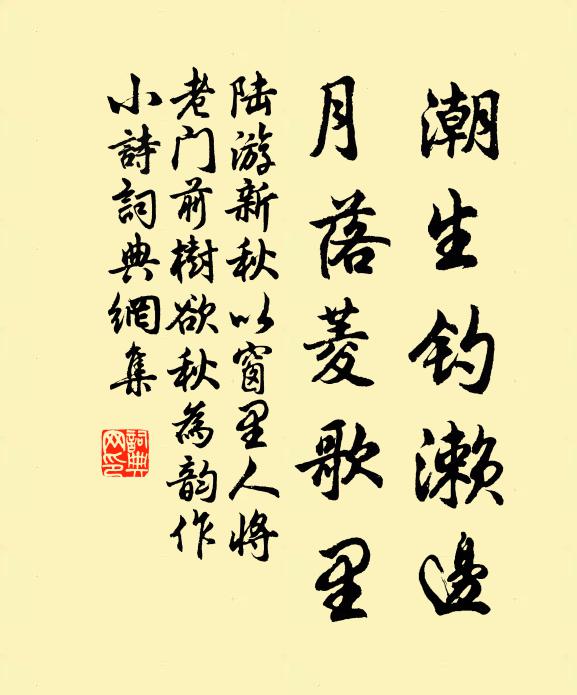 潮生钓濑邊
月落菱歌里
陆游新秋以窗里人将
老门前樹欲秋為韵作
小詩詞典網集
詞典网印